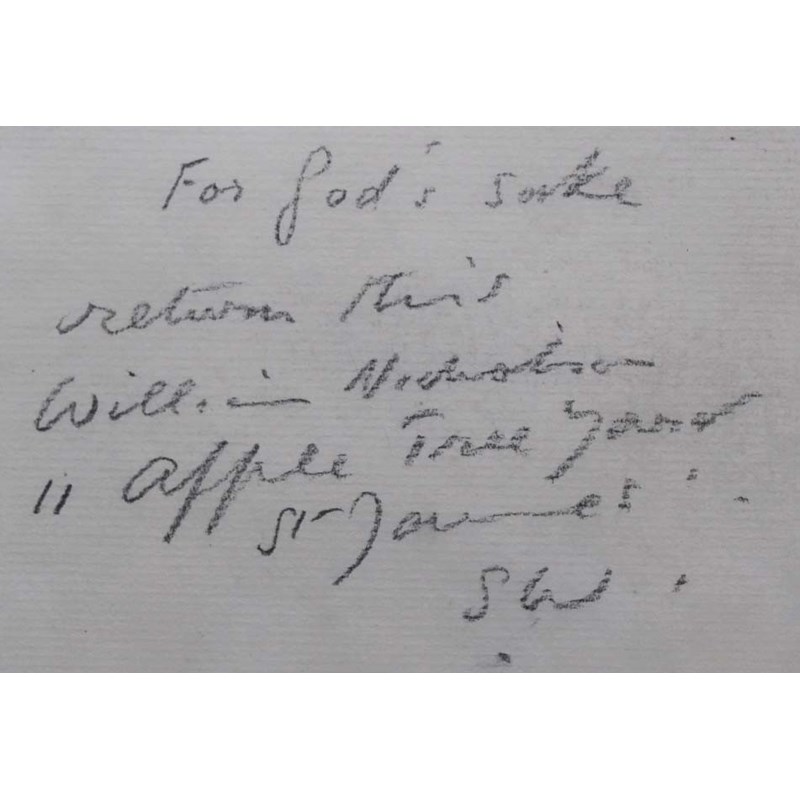 For God's sake
return this
William Nicholson
11 Apple Tree Yard
St James'.
S W.